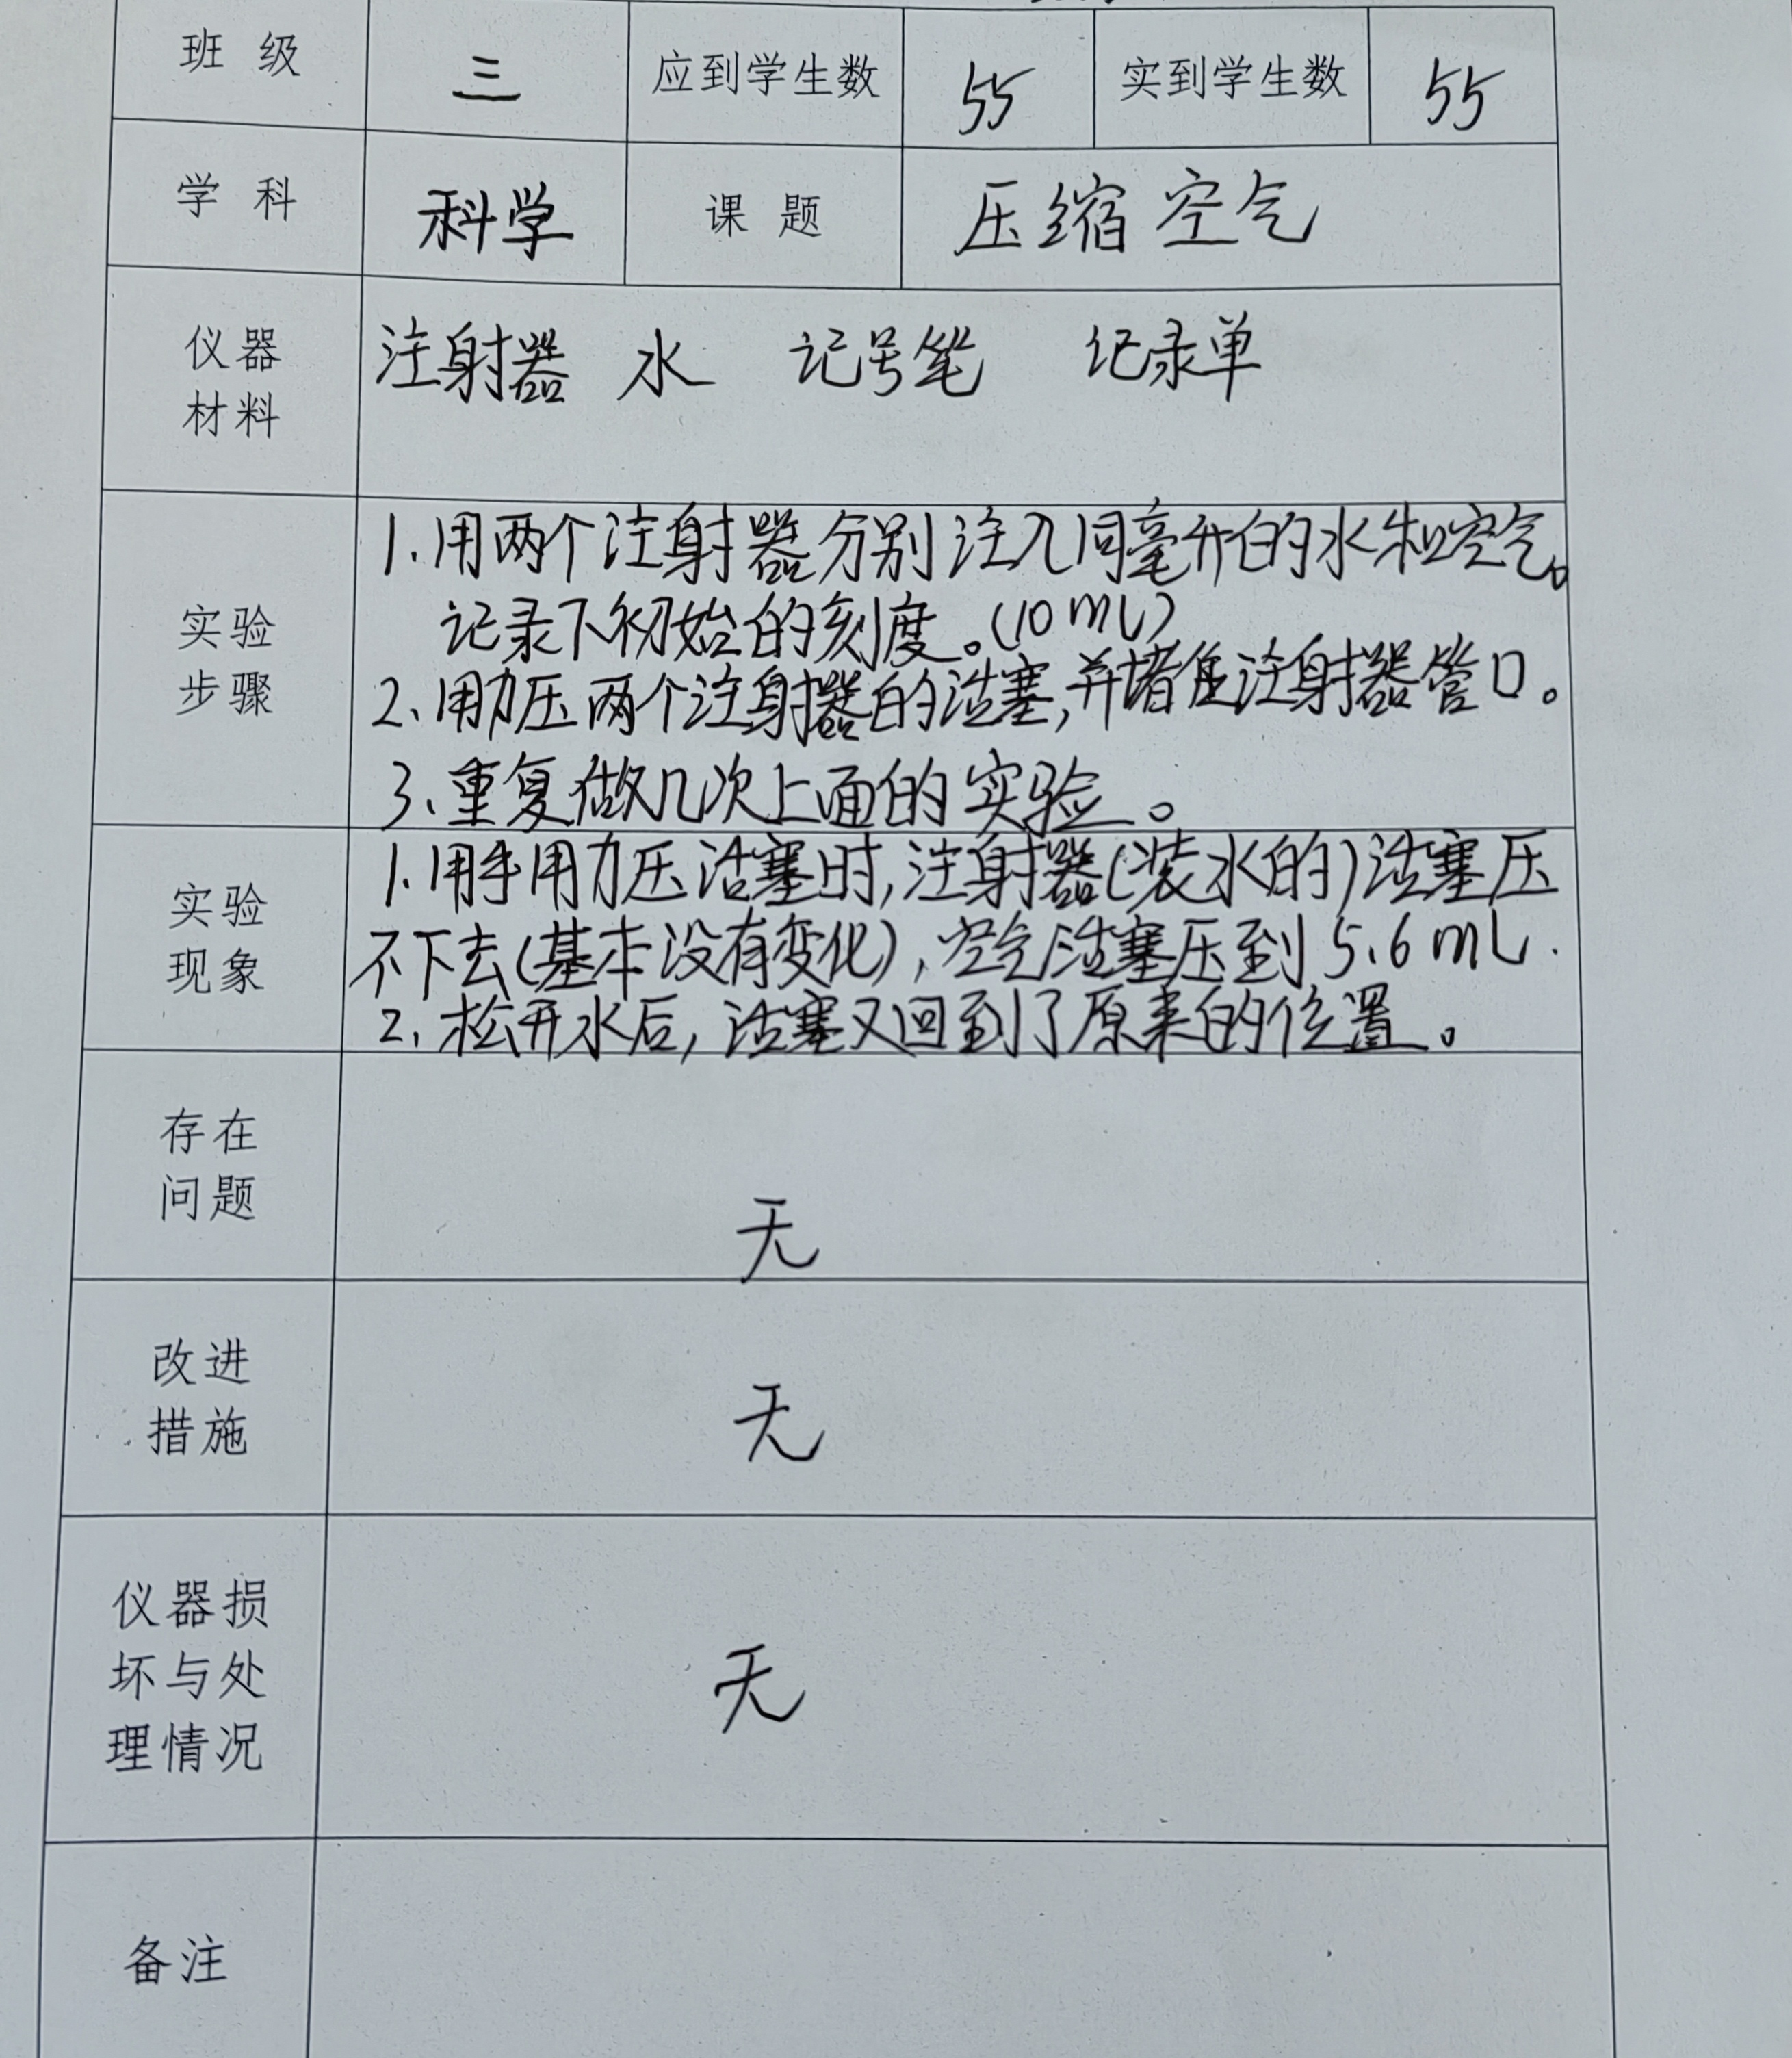 班 级 三 应到学生数 55 实到学生数 55
学 科 科学 课 题 压缩空气
仪器
材料
注射器 水 记号笔 记录单
实验
步骤
1.用两个注射器分别注入同毫升的水和空气。
记录下初始的刻度。(10mL)
2、用力压两个注射器的活塞,并堵住注射器管口。
3、重复做几次上面的实验。
实验
现象
1.用手用力压活塞时,注射器(装水的)活塞压
不下去(基本没有变化),空气活塞压到5.6mL.
2.松开水后,活塞又回到了原来的位置。
存在
问题
无
改进
措施
无
仪器损
坏与处
理情况
无
备注